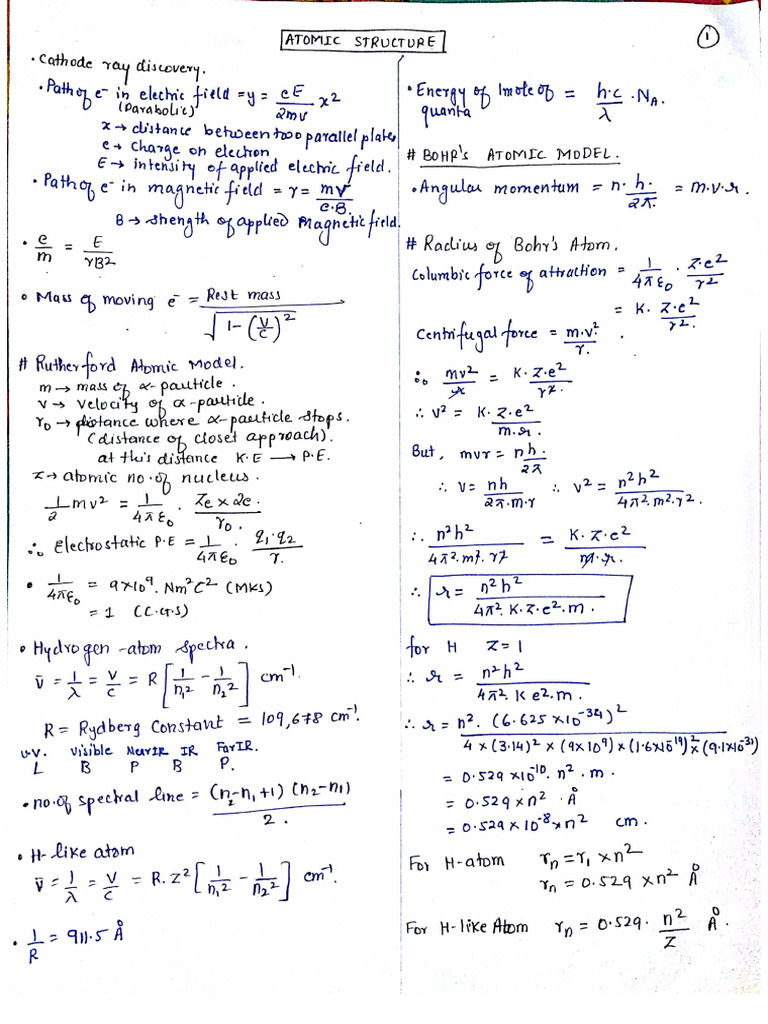 ATOMIC STRUCTURE
1
• Cathode ray discovery.
• Path of e⁻ in electric field = y = eE/2mv x²
(Parabolic)
x → distance between two parallel plates
e → charge on electron
E → intensity of applied electric field.
• Path of e⁻ in magnetic field = r = mv/e.B.
B → strength of applied magnetic field.
• e/m = E/rB²
• Mass of moving e⁻ = Rest mass/√(1-(v/c)²)
# Rutherford Atomic Model.
m → mass of α-particle.
v → velocity of α-particle.
r₀ → distance where α-particle stops.
(distance of closet approach).
at this distance K.E → P.E.
z → atomic no. of nucleus.
1/2 mv² = 1/4πε₀ . Ze × 2e./r₀.
∴ Electrostatic P.E = 1/4πε₀ . q₁.q₂/r.
• 1/4πε₀ = 9×10⁹. Nm²C² (MKS)
= 1 (C.G.S)
• Hydrogen-atom spectra.
ν̄ = 1/λ = v/c = R [1/n₁² - 1/n₂²] cm⁻¹
R = Rydberg Constant = 109,678 cm⁻¹.
U.V. Visible NearIR IR FarIR.
L B P B P.
• no. of spectral line = (n₂-n₁+1) (n₂-n₁)/2.
• H-like atom
ν̄ = 1/λ = v/c = R.Z² [1/n₁² - 1/n₂²] cm⁻¹.
• 1/R = 911.5 Å
• Energy of 1mole of = h.c/λ . N_A.
quanta
# BOHR'S ATOMIC MODEL.
• Angular momentum = n. h./2π. = m.v.r.
# Radius of Bohr's Atom.
Columbic force of attraction = 1/4πε₀ . Z.e²/r²
= K. Z.e²/r².
Centrifugal force = m.v²/r. .
∴ mv²/r = K.Z.e²/r².
∴ v² = K.Z.e²/m.r.
But, mvr = nh./2π
∴ v = nh/2π.m.r ∴ v² = n²h²/4π².m².r².
∴ n²h²/4π².m².r² = K.Z.e²/m.r.
∴ r = n²h²/4π².K.Z.e².m.
for H Z = 1
∴ r = n²h²/4π².K e².m.
∴ r = n². (6.625×10⁻³⁴)²/4×(3.14)²×(9×10⁹)×(1.6×10⁻¹⁹)²×(9.1×10⁻³¹)
= 0.529×10⁻¹⁰. n². m.
= 0.529×n² Å
= 0.529×10⁻⁸×n² cm.
For H-atom rₙ = r₁ × n²
rₙ = 0.529 × n² Å
For H-like Atom rₙ = 0.529. n²/Z Å.